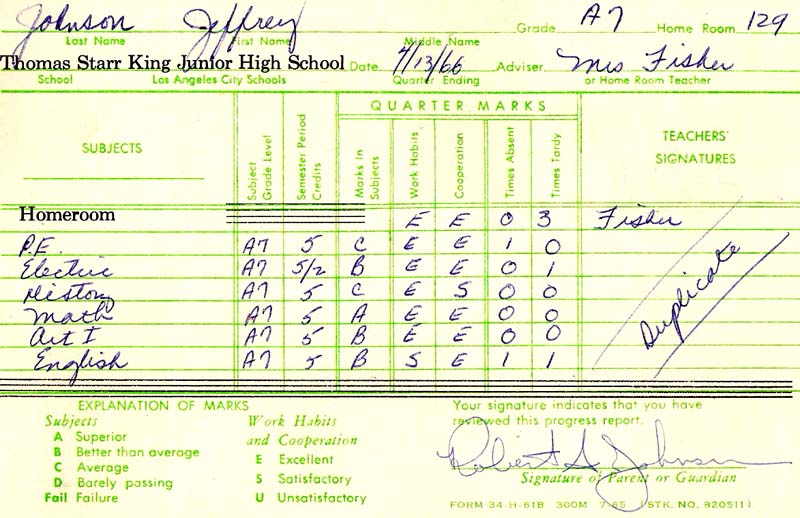 Johnson Jeffrey Grade A7 Home Room 129
Last Name First Name Middle Name
Thomas Starr King Junior High School Date 4/13/66 Adviser Mrs Fisher
School Los Angeles City Schools Quarter Ending or Home Room Teacher
QUARTER MARKS
SUBJECTS Subject Grade Level Semester Period Credits Marks In Subjects Work Habits Cooperation Times Absent Times Tardy TEACHERS' SIGNATURES
Homeroom E E 0 3 Fisher
P.E. A7 5 C E E 1 0
Electric A7 5/2 B E E 0 1
History A7 5 C E S 0 0
Math A7 5 A E E 0 0
Art I A7 5 B E E 0 0
English A7 5 B S E 1 1
Duplicate
EXPLANATION OF MARKS
Subjects
A Superior
B Better than average
C Average
D Barely passing
Fail Failure
Work Habits
and Cooperation
E Excellent
S Satisfactory
U Unsatisfactory
Your signature indicates that you have
reviewed this progress report.
Robert A Johnson
Signature of Parent or Guardian
FORM 34-H-61B 300M 7-65 (STK. NO. 820511)